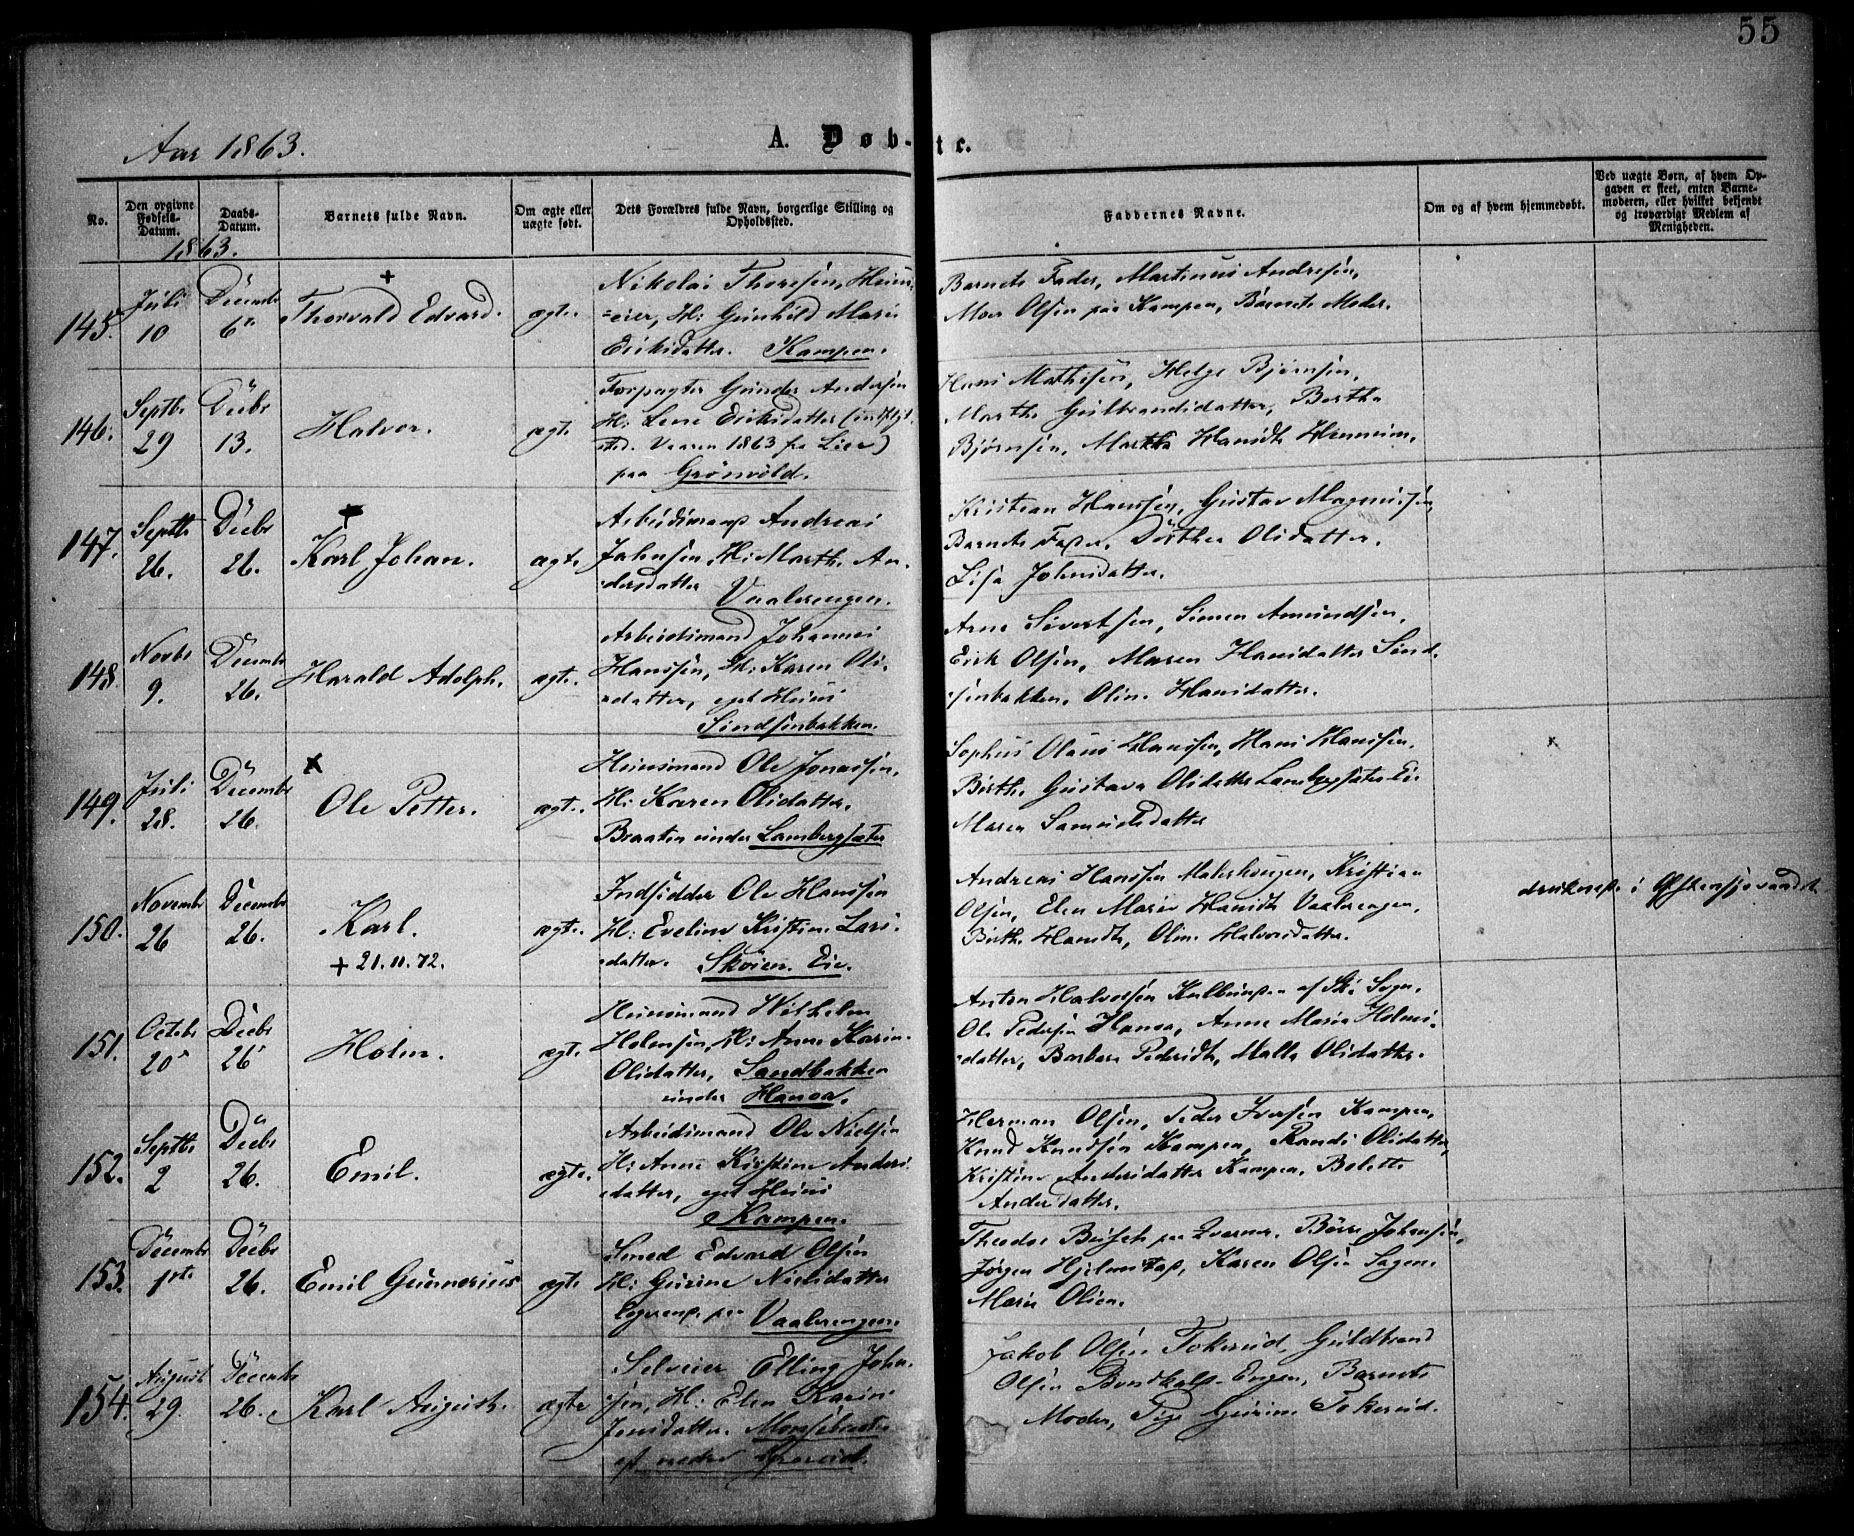 55
Aar 1863.
A. Døb-
te.
No.
Den opgivne Fødsels-Datum.
Daabs-Datum.
Barnets fulde Navn.
Om ægte eller uægte født.
Dets Forældres fulde Navn, borgerlige Stilling og Opholdssted.
Faddernes Navne.
Om og af hvem hjemmedøbt.
Ved uægte Børn, af hvem Opgaven er skeet, enten Barnemoderen, eller hvilket bekjendt og troværdigt Medlem af Menigheden.
1863.
145.
Juli
10
Decembr
6te
+
Thorvald Edvard.
ægte.
Nikolai Thoresen, Huus-
=eier, H: Gunhild Marie
Eriksdatter. Kampen.
Barnets Fader, Martinus Andresen,
Moer Olsen paa Kampen, Barnets Moder.
146.
Septbr
29
Decbr
13.
Halvor.
ægte
Forpagter Gunder Andersen
H: Lene Eriksdatter (indflyt.
sted. Vaaren 1863 fra Lier)
paa Grønvold.
Hans Mathisen, Helge Bjørnsen,
Marthe Gulbrandsdatter, Berthe
Bjørnsen, Marthe Hansdtr
147.
Septbr
26.
Decbr
26.
+
Karl Johan.
ægte
Arbeidsmand Andreas
Johnsen, H: Marthe An-
dersdatter Vaalerengen.
Kristian Hanssen, Gustav Magnussen
Barnets Fader, Dorthea Olsdatter.
Lisa Johnsdatter.
148.
Novbr
9.
Decembr
26.
Harald Adolph.
ægte.
Arbeidsmand Johannes
Hanssen, H: Karen Ols-
datter, eget Huus
Sindsenbakken.
Arne Sivertsen, Simen Amundsen,
Erik Olsen, Maren Hansdatter Sind-
senbakken, Oline Hansdatter.
149.
Juli
28.
Decembr
26.
x
Ole Petter.
ægte.
Huusmand Ole Jonassen,
H: Karen Olsdatter.
Braaten under Lambergsæter
Sophus Olaus Hanssen, Hans Hanssen,
Birthe Gustava Olsdatter Lambergsæter Eie
Maren Samuelsdatter
150.
Novembr
26
Decembr
26.
Karl.
+ 21.11.72.
ægte.
Indsidder Ole Hanssen
H: Eveline Kristine Lars-
datter. Skøien Eie.
Andreas Hanssen Malerhaugen, Kristian
Olsen, Elen Marie Hansdtr Vaalerengen,
Birthe Hansdtr, Oline Halvorsdatter.
druknede i Østensjøvandet
151.
Octobr
20
Decbr
26
Holm.
ægte
Huusmand Wilhelm
Holmsen, H: Anne Karine
Olsdatter, Sandbakken
under Hanoa.
Anton Halvorsen af Ski Sogn.
Ole Pedersen Hanoa, Anne Maria Holms-
datter, Barbara Pedersdtr, Malla Olsdatter.
152.
Septbr
2
Decbr
26.
Emil.
ægte.
Arbeidsmand Ole Nielsen
H: Anne Kirstine Anders-
datter, eget Huus
Kampen.
Herman Olsen, Peder Iversen Kampen,
Knud Knudsen Kampen, Randi Olsdatter,
Kristine Andersdatter Kampen, Bolette
Andersdatter.
153.
Decembr
1ste
Decbr
26.
Emil Gunnerius
ægte
Smed Edvard Olsen
H: Gurine Nielsdatter
logerende paa Vaalerengen.
Theodor paa Kværner, Børre Johansen,
Jørgen Hjelmstad, Karen Olsen Sagen,
Maria Olsen.
154.
August
29.
Decembr
26.
Karl August.
ægte
Selveier Elling John-
sen, H: Elen Karine
Jensdatter.
Jakob Olsen Tokerud, Guldbrand
Olsen Engen, Barnets
Moder, Pige Gurine Tokerud.